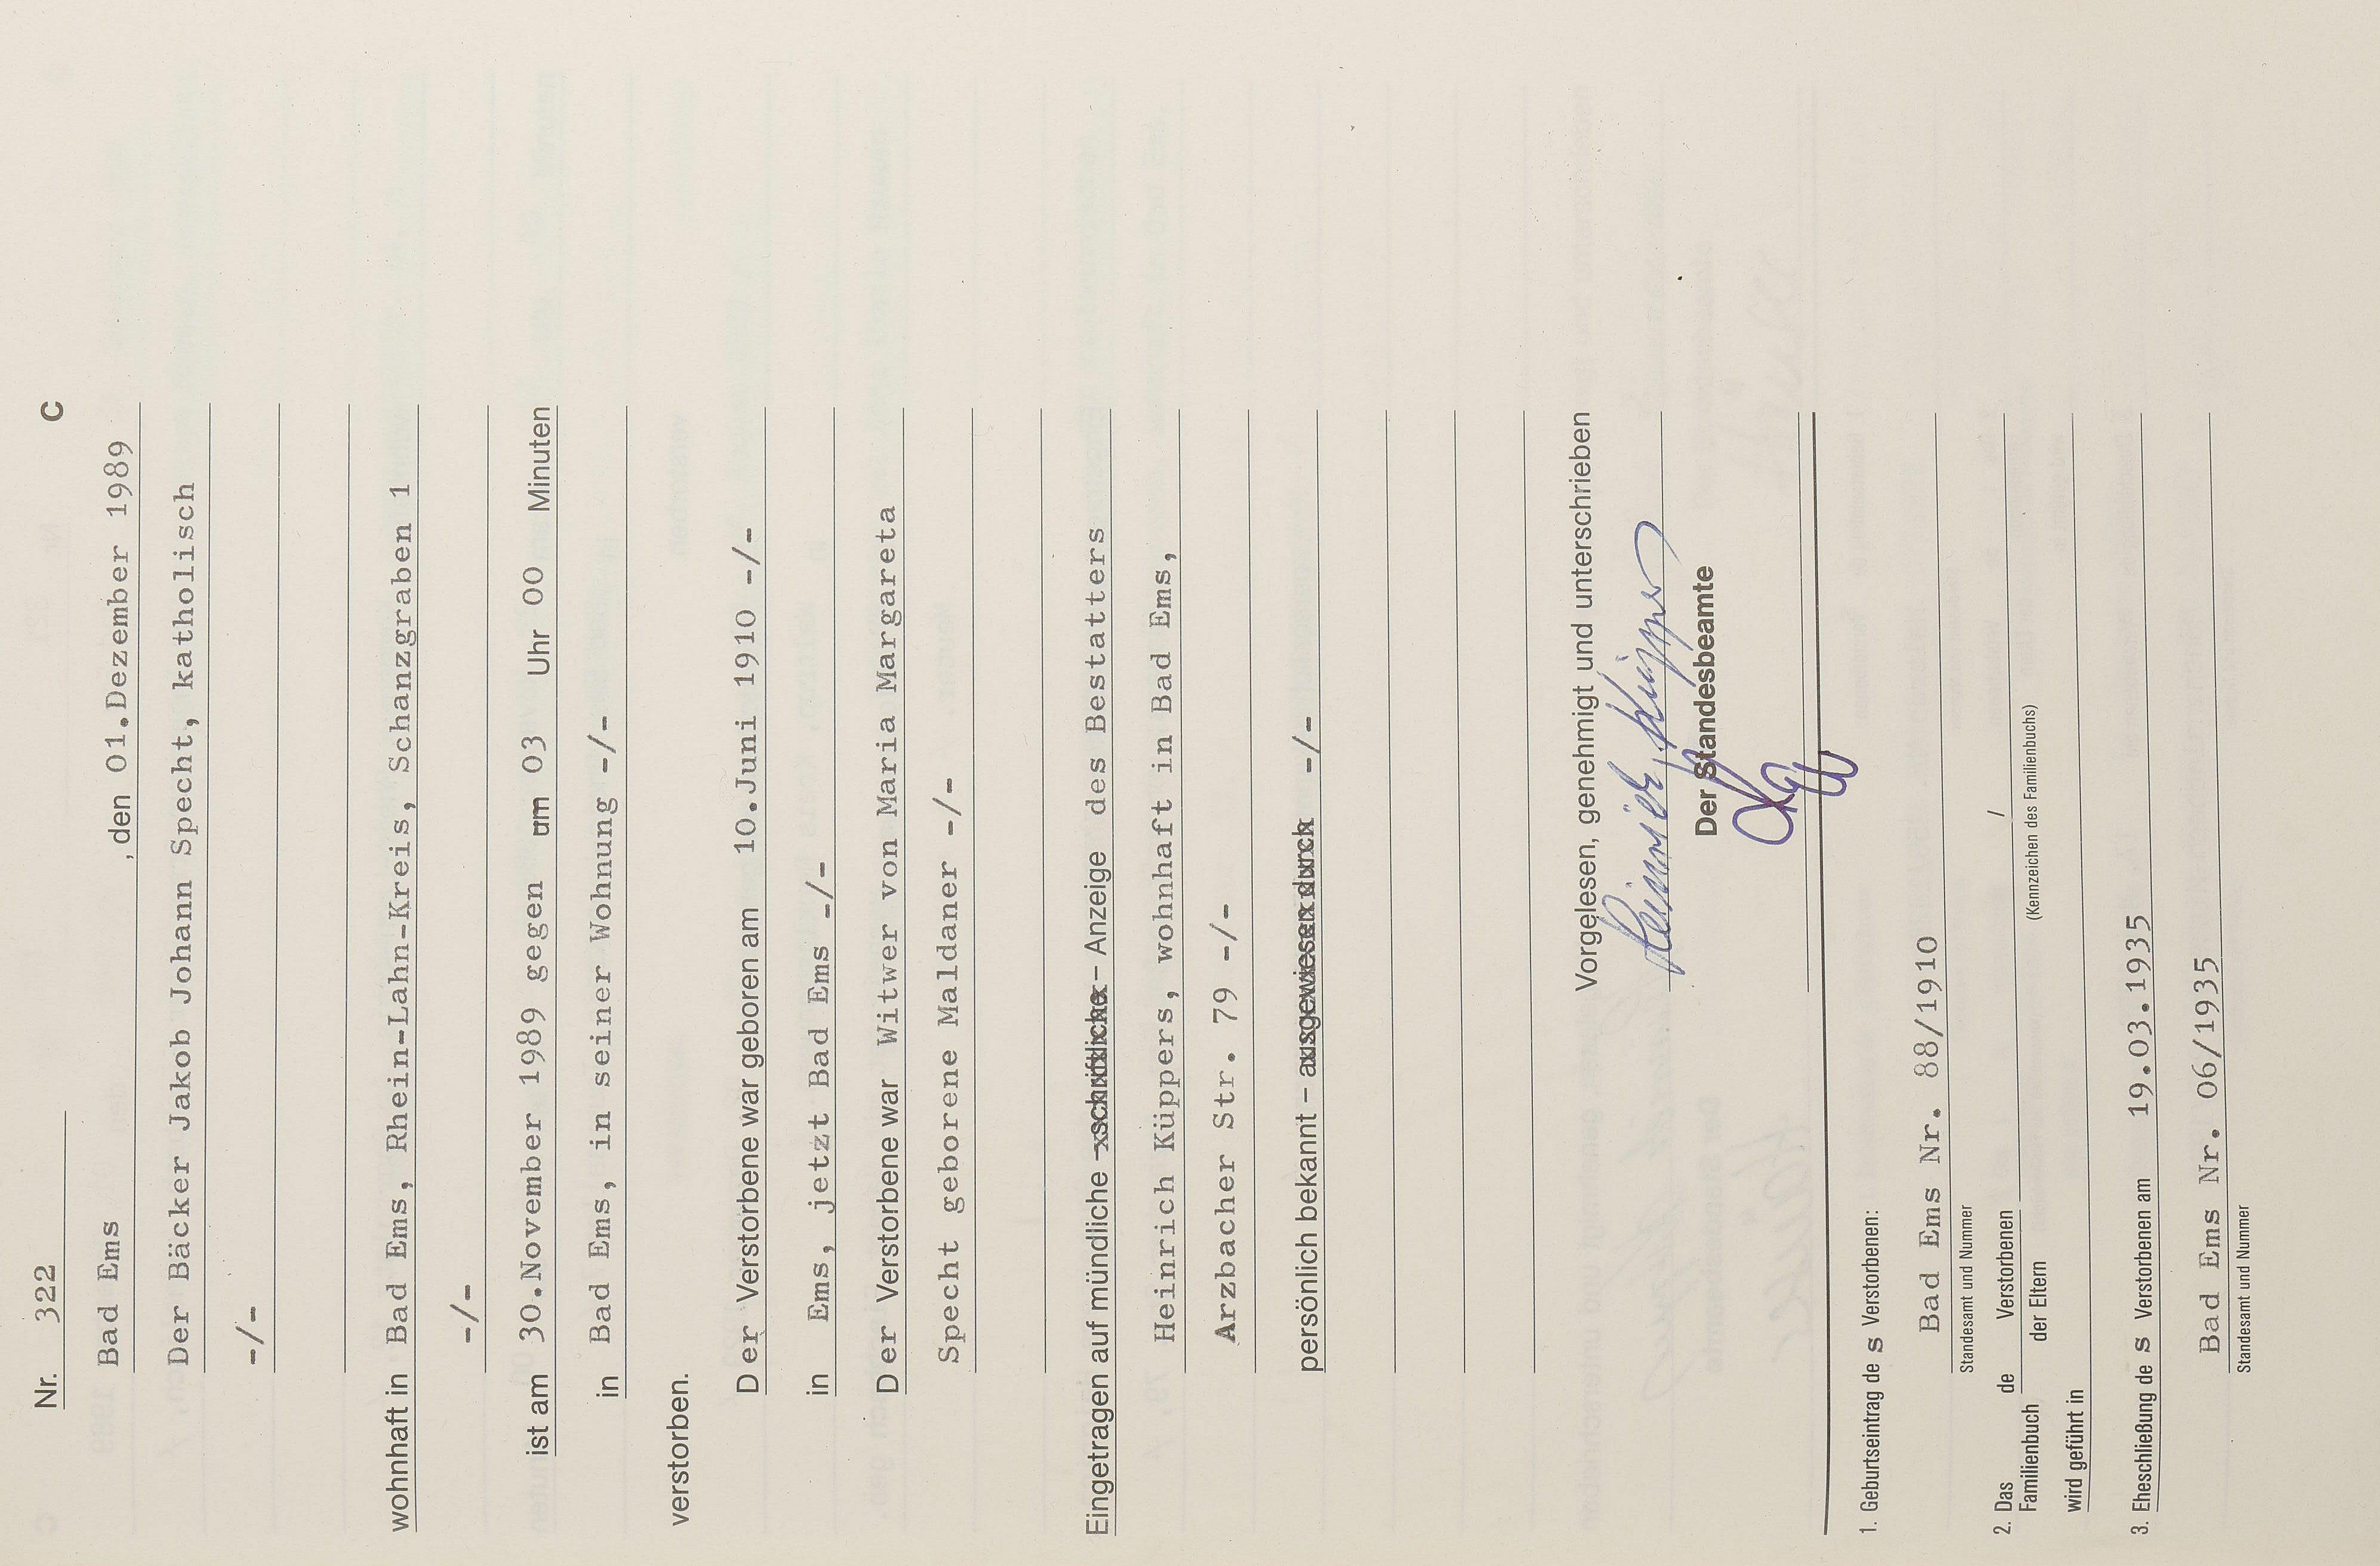 Nr. 322 C
Bad Ems , den 01.Dezember 1989
Der Bäcker Jakob Johann Specht, katholisch
-/-
wohnhaft in Bad Ems, Rhein-Lahn-Kreis, Schanzgraben 1
-/-
ist am 30.November 1989 gegen um 03 Uhr 00 Minuten
in Bad Ems, in seiner Wohnung -/-
verstorben.
Der Verstorbene war geboren am 10.Juni 1910 -/-
in Ems, jetzt Bad Ems -/-
Der Verstorbene war Witwer von Maria Margareta
Specht geborene Maldaner -/-
Eingetragen auf mündliche – schriftliche – Anzeige des Bestatters
Heinrich Küppers, wohnhaft in Bad Ems,
Arzbacher Str. 79 -/-
persönlich bekannt – ausgewiesen durch -/-
Vorgelesen, genehmigt und unterschrieben
Heinrich Küppers
Der Standesbeamte
1. Geburtseintrag des Verstorbenen:
Bad Ems Nr. 88/1910
Standesamt und Nummer
2. Das Familienbuch de Verstorbenen /
der Eltern (Kennzeichen des Familienbuchs)
wird geführt in
3. Eheschließung des Verstorbenen am 19.03.1935
Bad Ems Nr. 06/1935
Standesamt und Nummer